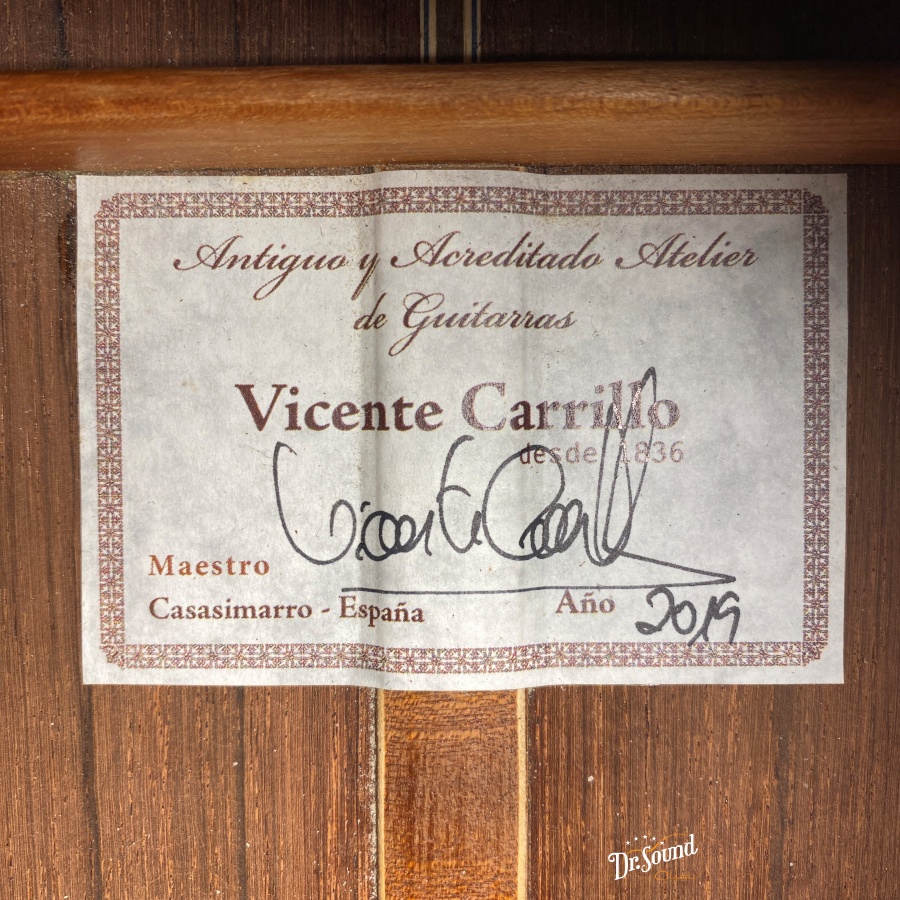 Antiguo y Acreditado Atelier
de Guitarras
Vicente Carrillo
desde 1836
Vicente Carrillo
Maestro
Casasimarro - España
Año 2019
Dr.Sound